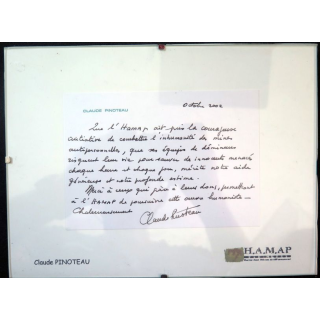 Octobre 2002
CLAUDE PINOTEAU
Que l'HAMAP ait pris la courageuse
initiative de combattre l'inhumanité des mines
antipersonnelles, que ses équipes de démineurs
risquent leur vie pour sauver des innocents menacés
chaque heure et chaque jour, mérite notre aide
généreuse et notre profonde estime.
Merci à ceux qui grâce à leurs dons, permettent
à l'HAMAP de poursuivre cette œuvre humanitaire.
Chaleureusement
Claude Pinoteau
Claude PINOTEAU
H.A.M.AP